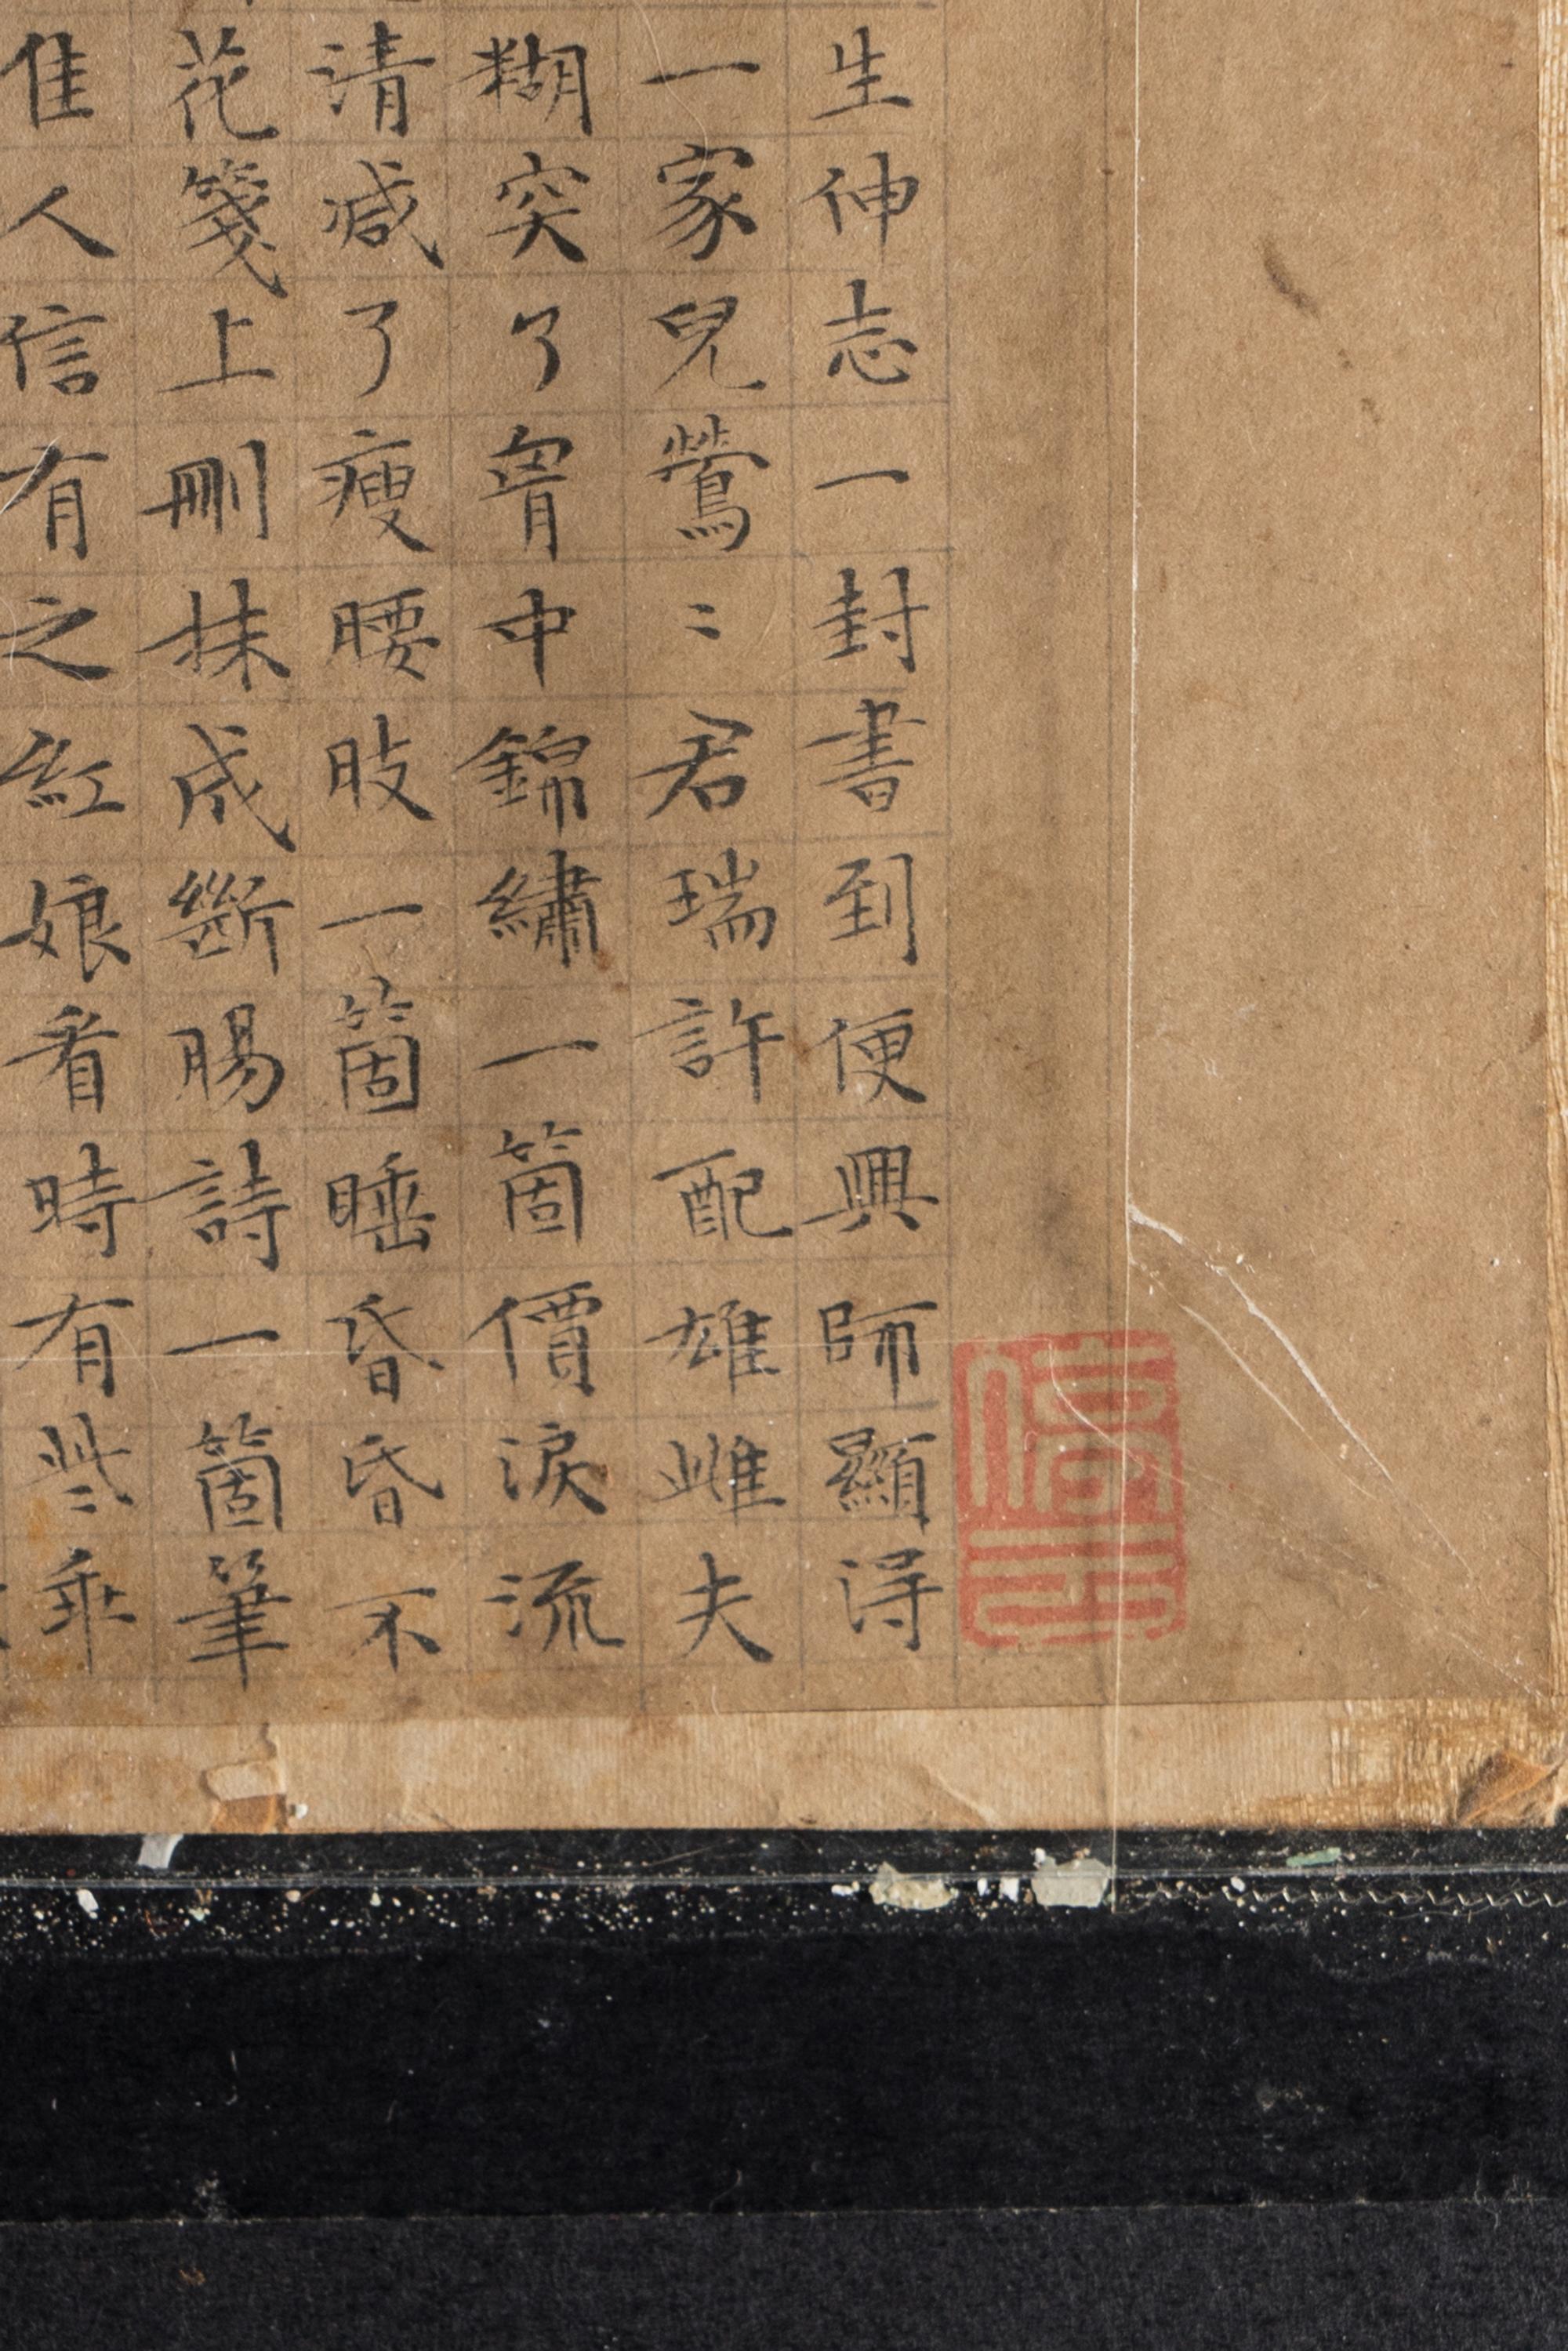 生伸志一封書到便興師顯淂
一家兒鶯〻君瑞許配雄雌夫
糊突了胷中錦繡一箇價淚流
清減了瘦腰肢一箇睡昏昏不
花箋上刪抹成斷腸詩一箇筆
佳人信有之紅娘看時有些乖